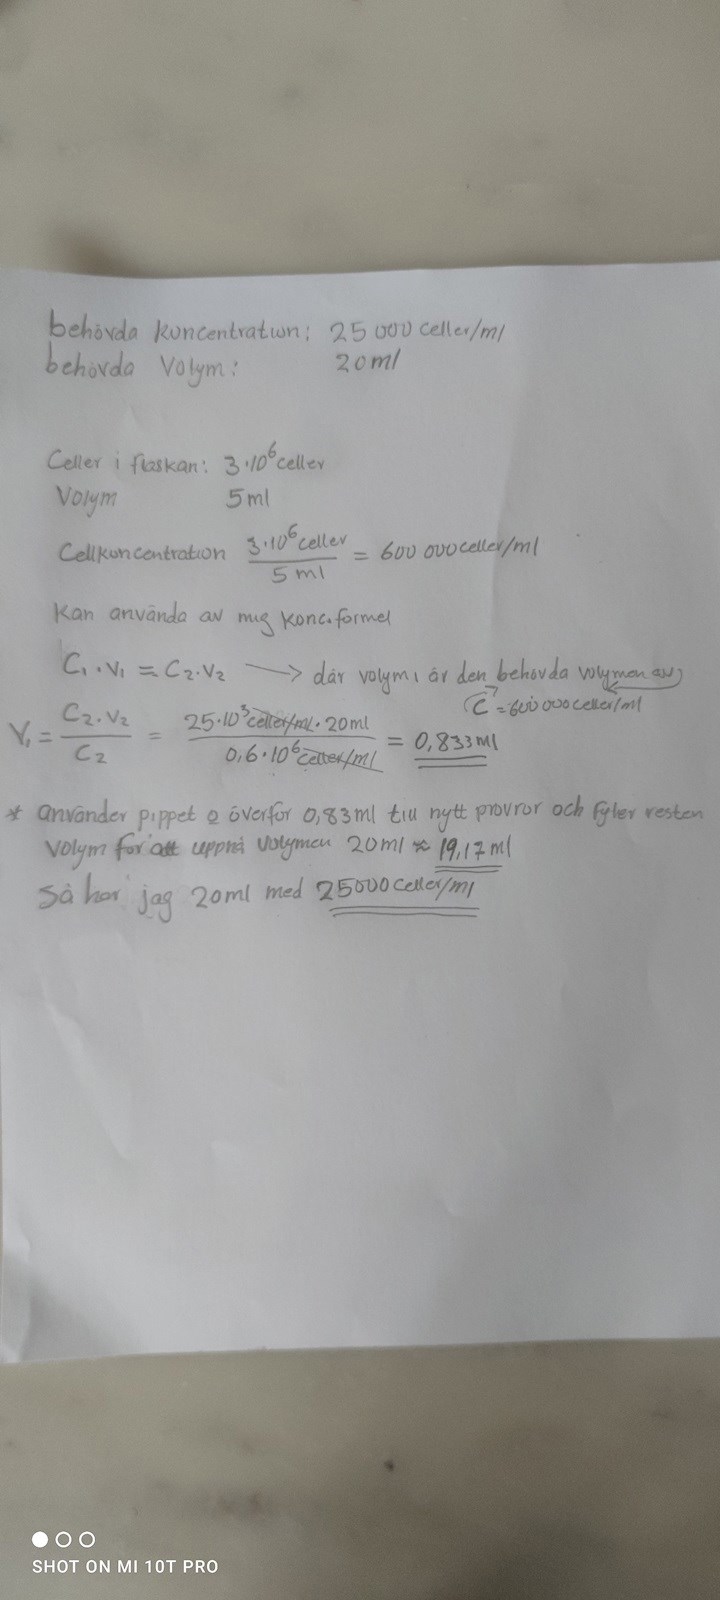 behövda koncentration: 25 000 celler/ml
behövda Volym: 20ml
Celler i flaskan: 3·10⁶ celler
Volym 5ml
Cellkoncentration 3·10⁶ celler / 5 ml = 600 000 celler/ml
Kan använda av mig konc.formel
C₁·V₁ = C₂·V₂ → där volym₁ är den behövda volymen av
C = 600 000 celler/ml
V₁ = C₂·V₂ / C₂ = 25·10³ celler/ml · 20ml / 0,6·10⁶ celler/ml = 0,833ml
* använder pippet o överför 0,83ml till nytt provrör och fyler resten
Volym för att uppnå volymen 20ml ≈ 19,17ml
Så har jag 20ml med 25000 celler/ml
SHOT ON MI 10T PRO